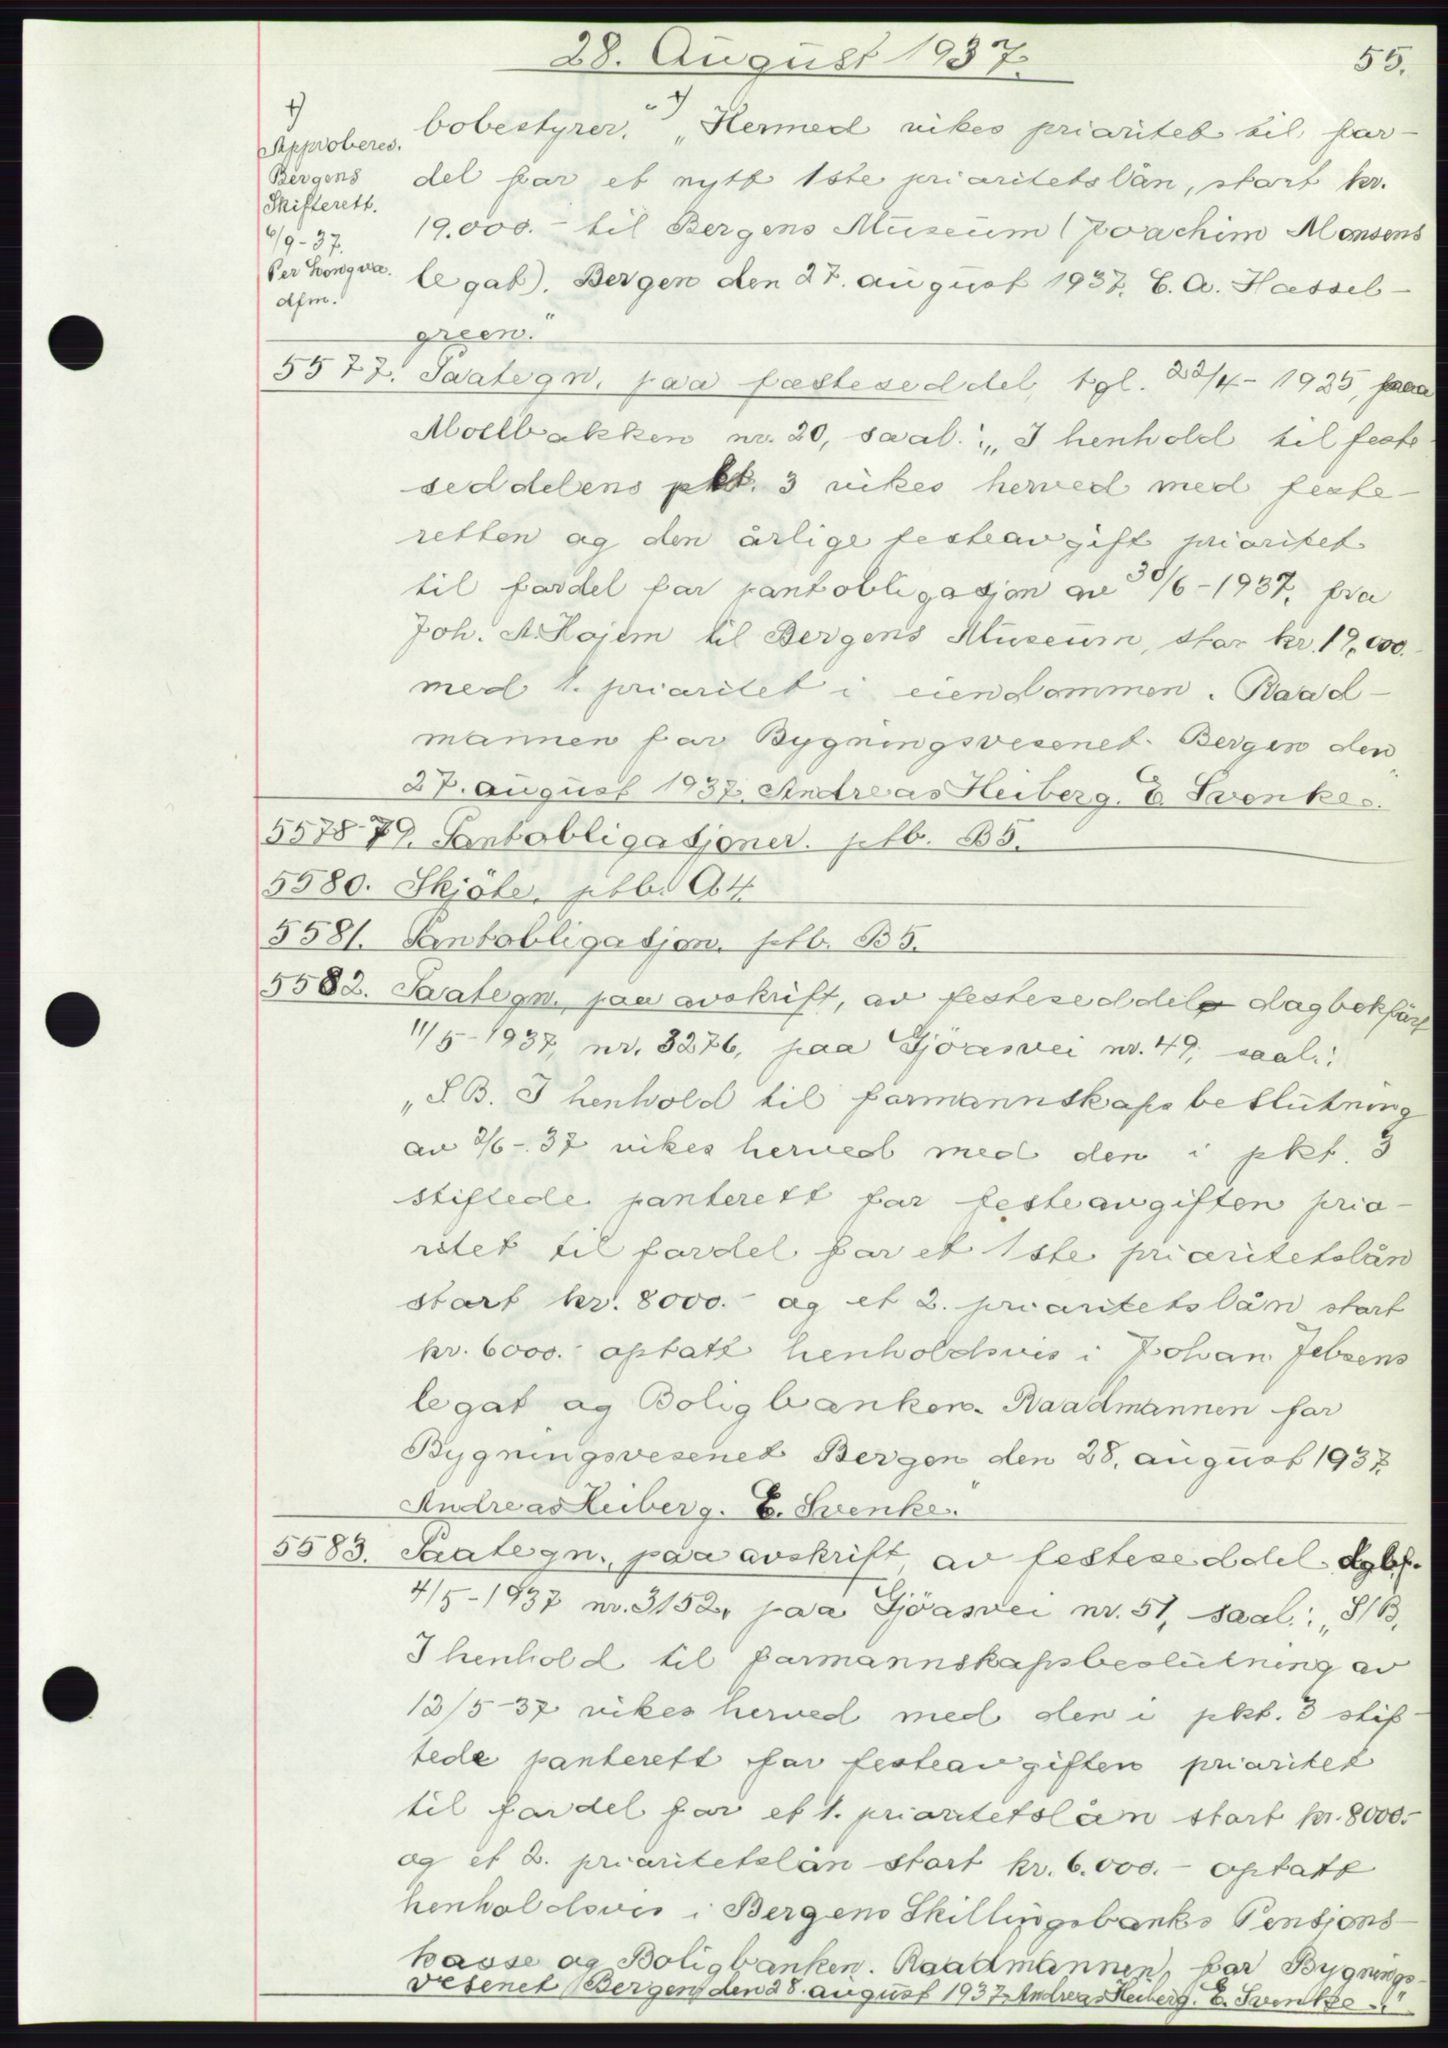 28. August 1937.
55.
+)
Approberes.
Bergens
Skifterett.
6/9-37.
Per
dfm.
bobestyrer." +) „Hermed vikes prioritet til for-
del for et nytt 1ste prioritetslån, stort kr.
19.000.- til Bergens Museum (Joachim Monsens
legat). Bergen den 27. august 1937. C. A. Hassel-
green."
5577. Paategn. paa festeseddel, tgl. 22/4-1925, paa
Moellbakken nr. 20, saal.: „I henhold til feste
seddelens pkt. 3 vikes herved med feste-
retten og den årlige festeavgift prioritet
til fordel for pantobligasjon av 30/6-1937, fra
Joh. A. Hojem til Bergens Museum, stor kr. 19.000.-
med 1. prioritet i eiendommen. Raad-
mannen for Bygningsvesenet. Bergen den
27. august 1937. Andreas Heiberg. E. Svenke."
5578-79. Pantobligasjoner. ptb. B5.
5580. Skjöte. ptb. A4.
5581. Pantobligasjon. ptb. B5.
5582. Paategn. paa avskrift, av festeseddel dagbokfört
11/5-1937, nr. 3276, paa Gjöasvei nr. 49, saal.:
„S.B. I henhold til formannskapsbeslutning
av 2/6-37 vikes herved med den i pkt. 3
stiftede panterett for festeavgiften prio-
ritet til fordel for et 1ste prioritetslån
stort kr. 8000.- og et 2. prioritetslån stort
kr. 6000.- optatt henholdsvis i Johan Jebsens
legat og Boligbanken. Raadmannen for
Bygningsvesenet Bergen den 28. august 1937.
Andreas Heiberg. E. Svenke."
5583. Paategn., paa avskrift, av festeseddel dgbf.
4/5-1937 nr. 3152, paa Gjöasvei nr. 51, saal.: „S/B.
I henhold til formannskapsbeslutning av
12/5-37 vikes herved med den i pkt. 3 stif-
tede panterett for festeavgiften prioritet
til fordel for et 1. prioritetslån stort kr. 8000.-
og et 2. prioritetslån stort kr. 6.000.- optatt
henholdsvis i Bergens Skillingsbanks Pensjons-
kasse og Boligbanken. Raadmannen for Bygnings-
vesenet Bergen den 28. august 1937. Andreas Heiberg. E. Svenke."